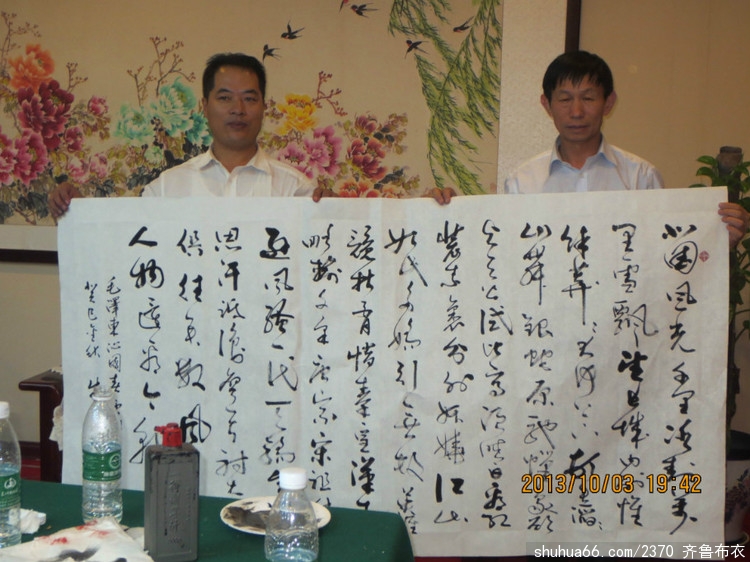 北国风光千里冰封万
里雪飘望长城内外惟
余莽莽大河上下顿失滔滔
山舞银蛇原驰蜡象欲
与天公试比高须晴日看红
装素裹分外妖娆江山
如此多娇引无数英雄
竞折腰惜秦皇汉武
略输文采唐宗宋祖稍
逊风骚一代天骄成吉
思汗只识弯弓射大
俱往矣数风
人物还看今朝
毛澤東沁园春
癸巳金秋
2013/10/03 19:42
shuhua66.com/2370 齐鲁布衣